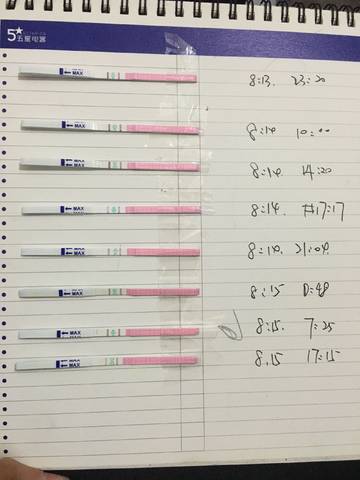 5★五星电器
MAX 8:13. 23:20
MAX 8:14 10:00
MAX 8:14. 14:20
MAX 8:14. 17:17
MAX 8:14. 21:04.
MAX 8:15 0:48
MAX 8:15. 7:25
MAX 8.15 17:15